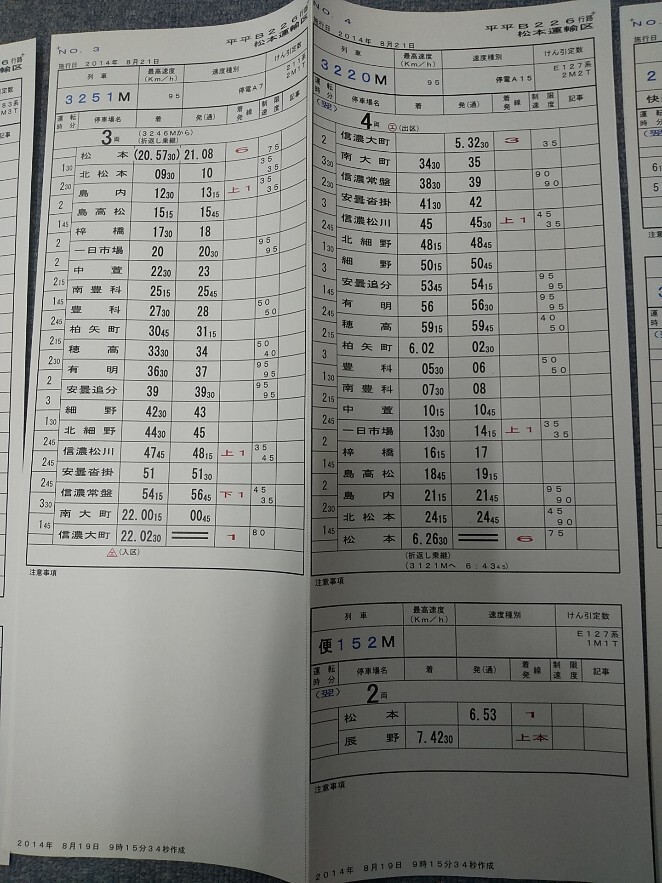 NO. 3
平平B226行路
松本運輸区
施行日 2014年 8月21日
列車 最高速度(Km/h) 速度種別 けん引定数
3251M 95 停電A7 211系 2M1T
運転時分 停車場名 着 発(通) 着発線 制限速度 記事
3両 (3246Mから) (折返し乗継)
松本 (20.5730) 21.08 6 75
130 北松本 0930 10 35 35
230 島内 1230 1315 上1 35 35
2 島高松 1515 1545
145 梓橋 1730 18
2 一日市場 20 2030 95 95
2 中萱 2230 23
215 南豊科 2515 2545
145 豊科 2730 28 50 50
245 柏矢町 3045 3115
215 穂高 3330 34 50 40
230 有明 3630 37 95 95
2 安曇追分 39 3930 95 95
3 細野 4230 43
130 北細野 4430 45
245 信濃松川 4745 4815 上1 35 45
245 安曇沓掛 51 5130
245 信濃常盤 5415 5645 下1 45 35
330 南大町 22.0015 0045
145 信濃大町 22.0230 1 80
(入区)
注意事項
2014年 8月19日 9時15分34秒作成
NO. 4
平平B226行路
松本運輸区
施行日 2014年 8月21日
列車 最高速度(Km/h) 速度種別 けん引定数
3220M 95 停電A15 E127系 2M2T
運転時分 停車場名 着 発(通) 着発線 制限速度 記事
(翌) 4両 (出区)
信濃大町 5.3230 3 35
2 南大町 3430 35
330 信濃常盤 3830 39 90 90
230 安曇沓掛 4130 42
3 信濃松川 45 4530 上1 45 35
245 北細野 4815 4845
130 細野 5015 5045
3 安曇追分 5345 5415 95 95
145 有明 56 5630 95 95
245 穂高 5915 5945 40 50
215 柏矢町 6.02 0230
3 豊科 0530 06 50 50
130 南豊科 0730 08
215 中萱 1015 1045
245 一日市場 1330 1415 上1 35 35
2 梓橋 1615 17
145 島高松 1845 1915
2 島内 2115 2145 95 90
230 北松本 2415 2445 45 90
145 松本 6.2630 6 75
(折返し乗継)
(3121Mへ 6.4345)
注意事項
列車 最高速度(Km/h) 速度種別 けん引定数
便152M E127系 1M1T
運転時分 停車場名 着 発(通) 着発線 制限速度 記事
(翌) 2両
松本 6.53 1
辰野 7.4230 上本
注意事項
2014年 8月19日 9時15分34秒作成